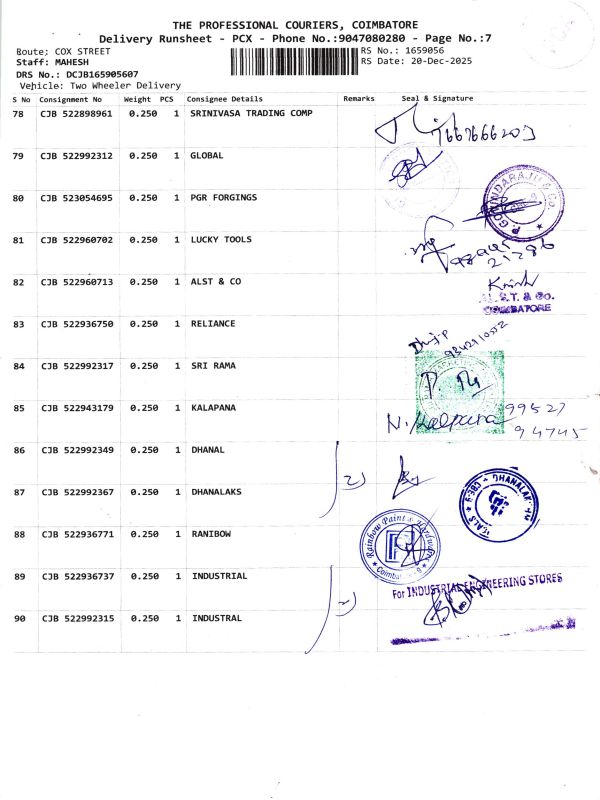 THE PROFESSIONAL COURIERS, COIMBATORE
Delivery Runsheet - PCX - Phone No.:9047080280 - Page No.:7
Route; COX STREET
RS No.: 1659056
Staff: MAHESH
RS Date: 20-Dec-2025
DRS No.: DCJB165905607
Vehicle: Two Wheeler Delivery
S No Consignment No Weight PCS Consignee Details Remarks Seal & Signature
78 CJB 522898961 0.250 1 SRINIVASA TRADING COMP
7667666203
79 CJB 522992312 0.250 1 GLOBAL
80 CJB 523054695 0.250 1 PGR FORGINGS
P. GOVINDARAJU & CO.
81 CJB 522960702 0.250 1 LUCKY TOOLS
82 CJB 522960713 0.250 1 ALST & CO
AL.S.T. & Co.
COIMBATORE
83 CJB 522936750 0.250 1 RELIANCE
84 CJB 522992317 0.250 1 SRI RAMA
85 CJB 522943179 0.250 1 KALAPANA
N. Kalpana 99527
94745
86 CJB 522992349 0.250 1 DHANAL
2)
87 CJB 522992367 0.250 1 DHANALAKS
88 CJB 522936771 0.250 1 RANIBOW
Rainbow Paint & Hardware
89 CJB 522936737 0.250 1 INDUSTRIAL
For INDUSTRIAL ENGINEERING STORES
90 CJB 522992315 0.250 1 INDUSTRAL